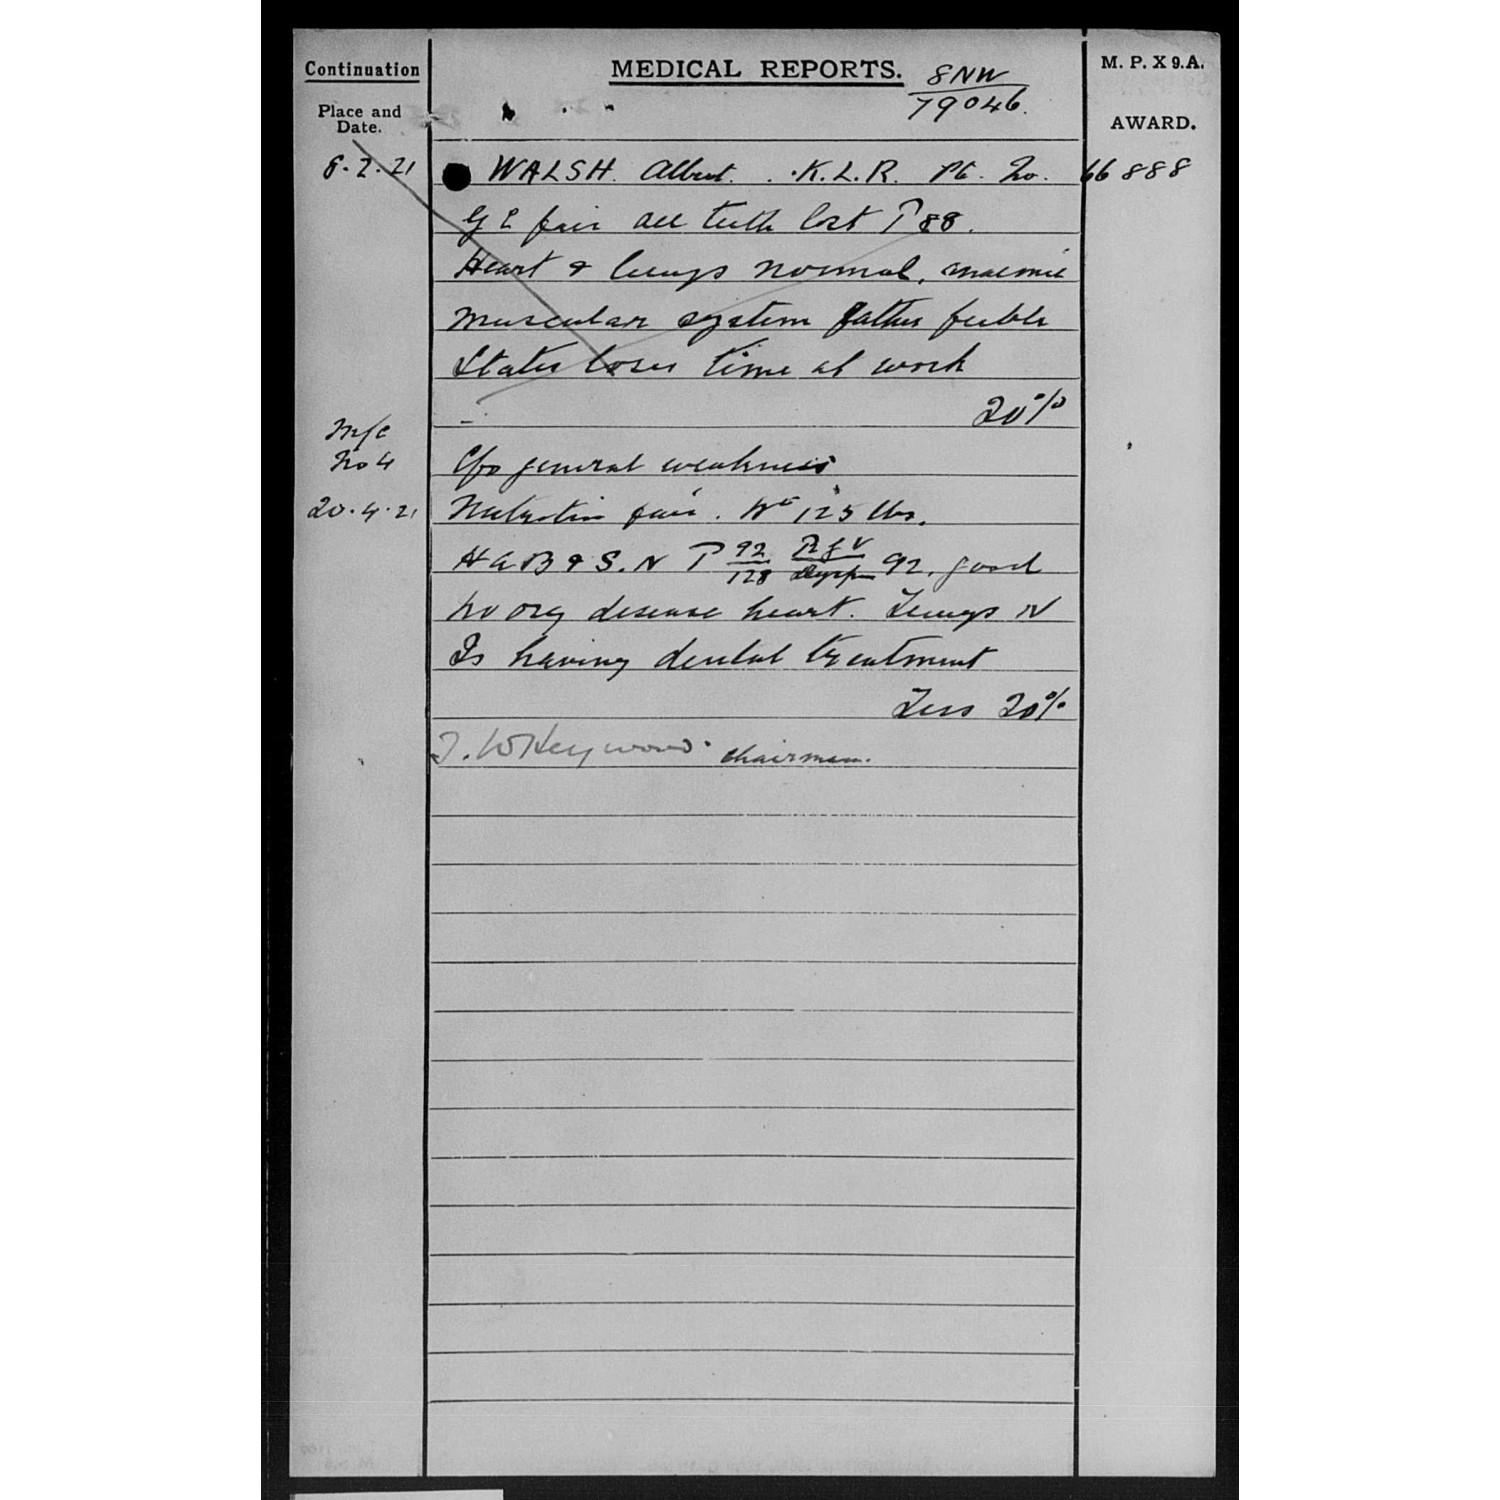 Continuation
MEDICAL REPORTS.
M. P. X 9.A.
8NW
79046.
Place and
Date.
AWARD.
8.2.21 WALSH. Albert. K.L.R. Pt. No. 66888
G C fair all teeth lost P 88.
Heart & lungs normal, anaemic
muscular system rather feeble
States loses time at work
20%
M/c
No 4 C/o general weakness
20.4.21 Nutrition fair. Wt 125 lbs.
H A B & S. N P 92/128 92. good
No org disease heart. Lungs N
Is having dental treatment
Less 20%
T. W Heywood. Chairman.